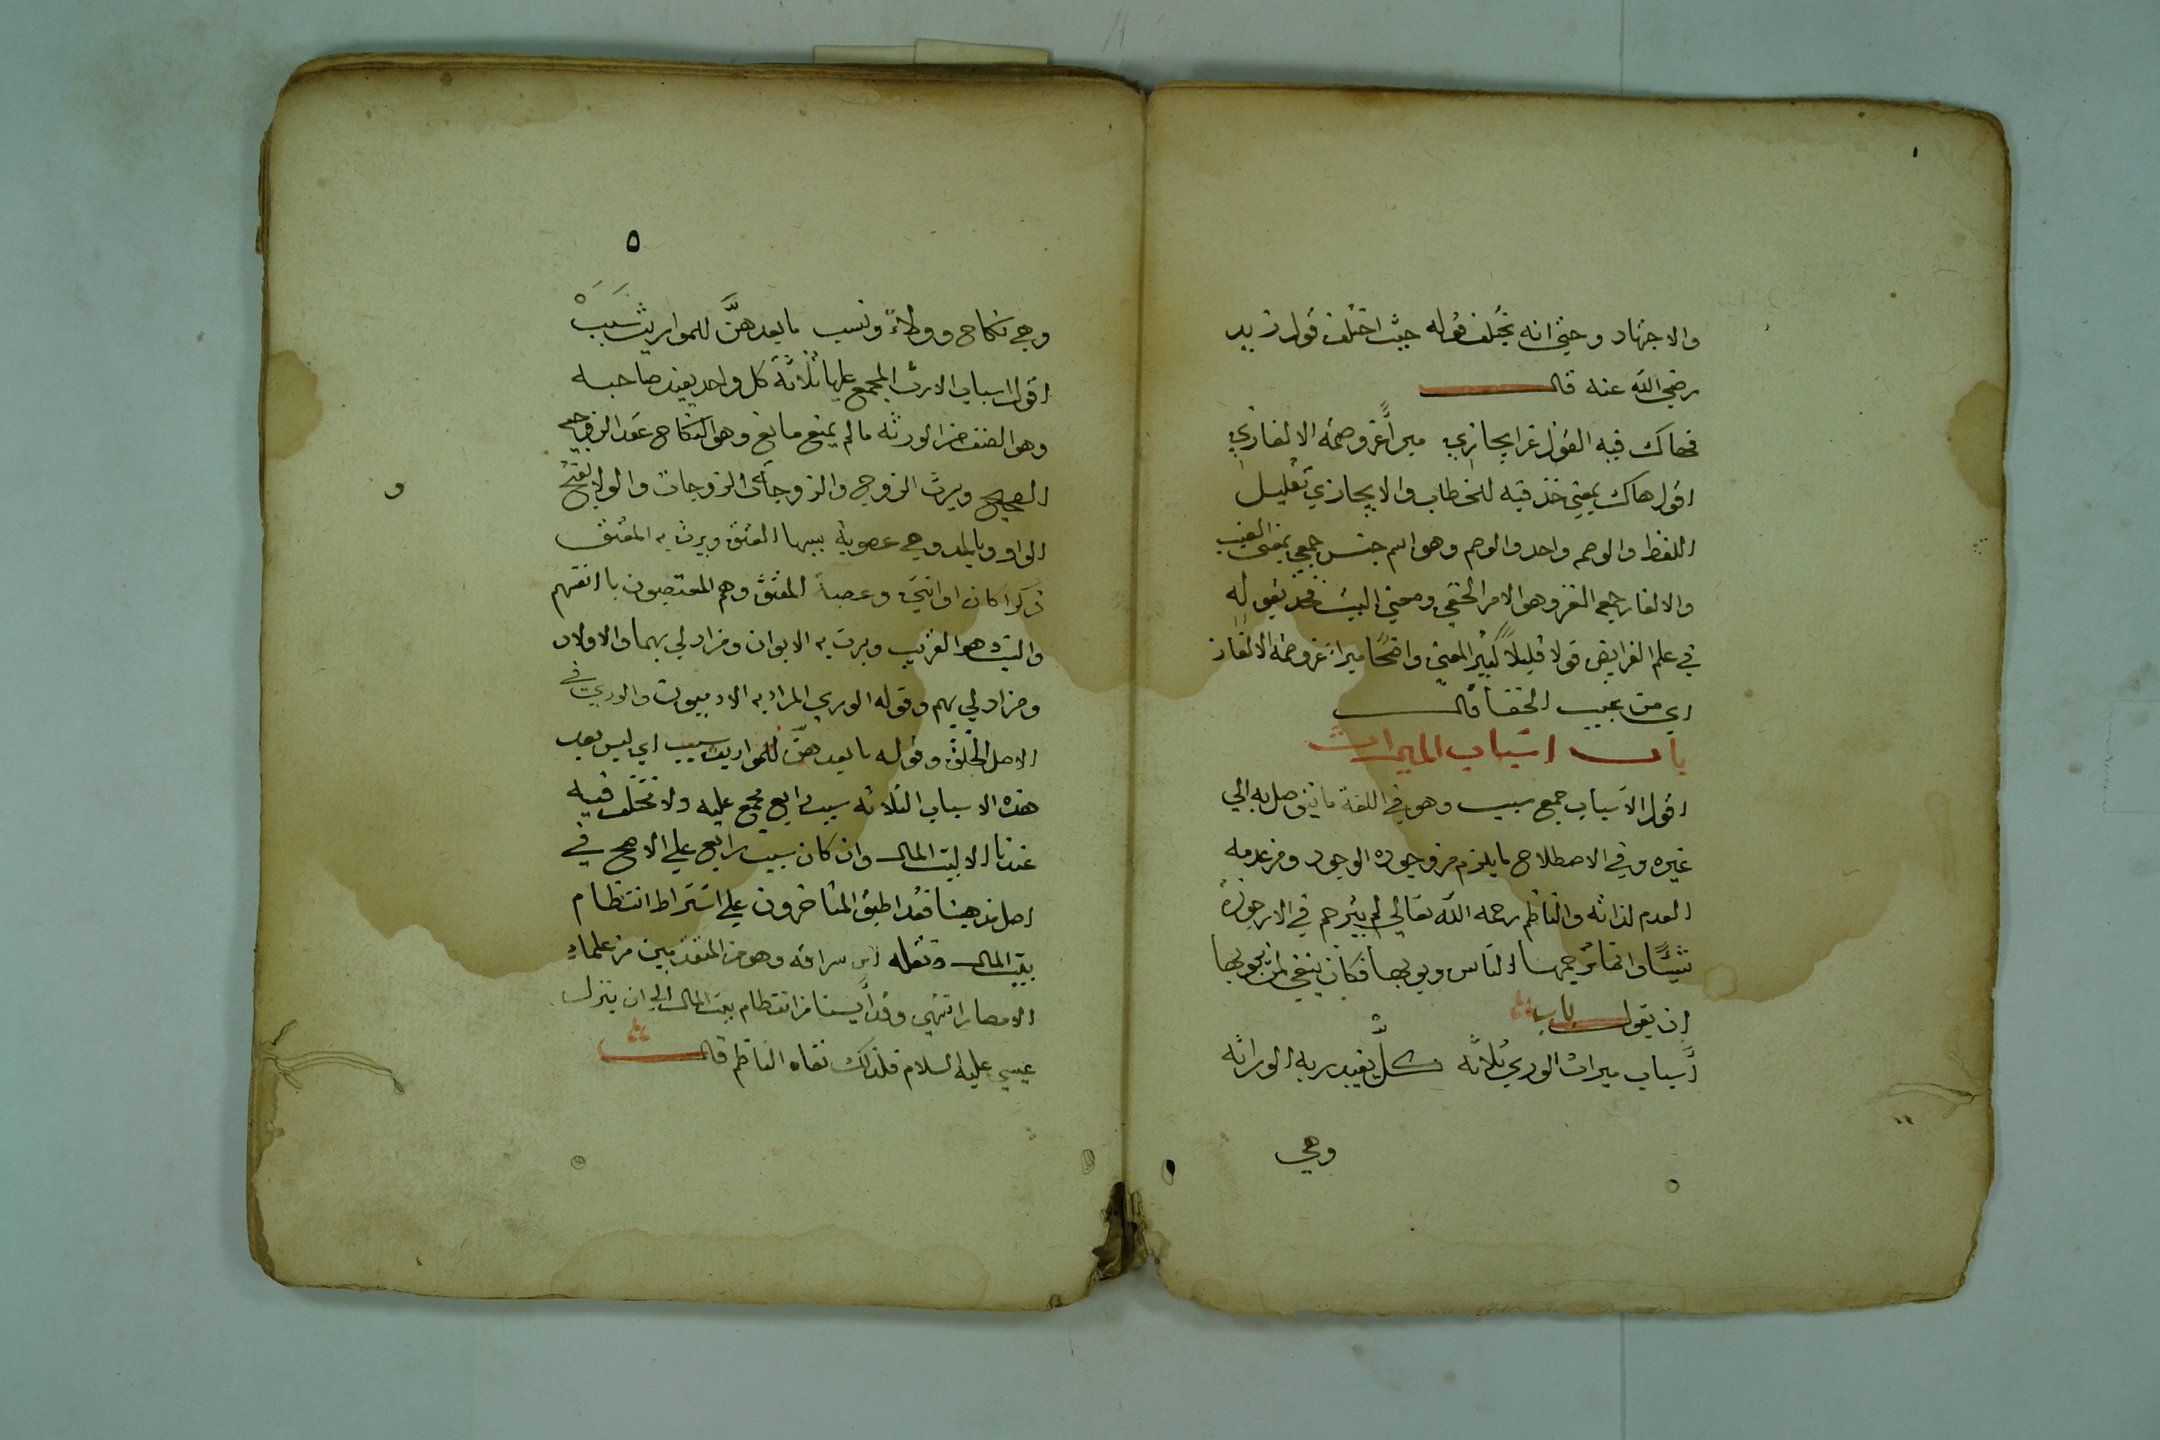 والاجتهاد وحتى انه يختلف قوله حيث اختلف قول زيد
رضي الله عنه قال
فهاك فيه القول عن ايجازي مبرأً عن وصمة الالغازي
اقول هاك بمعنى خذ فيه للخطاب والايجازي تقليل
اللفظ والوصم واحد والوصم وهو اسم جنس جمعي بمعنى العيب
والالغاز جمع لغز وهو الامر الخفي ومعنى البيت فخذ يقوله
في علم الفرايض قولا قليلاً كثير المعنى واضحًا مبرا عن وصمة الالغاز
اي من عيب الخفا قال
باب اسباب الميراث
اقول الاسباب جمع سبب وهو في اللغة ما يتوصل به الي
غيره وفي الاصطلاح ما يلزم من وجوده الوجود ومن عدمه
العدم لذاته والناظم رحمه الله تعالي لم يترجم في الارجوزة
شيئًا وانما ترجمها الناس وبوبها فكان ينبغي لمن بوبها
ان يقول باب
اسباب ميراث الوري ثلاثه كلٌ يفيد ربه الوراثه
وهي
٥
وهي نكاح وولاءٌ ونسب ما بعدهنَّ للمواريث سَبَبْ
اقول اسباب الارث المجمع عليها ثلاثة كل واحد يفيد صاحبه
وهو المتصف من الورثه ما لم يمنع مانع وهو النكاح عقد الزوجيه
الصحيح ويرث الزوج والزوجة والزوجات والولا بفتح
الواو وبالمد وهي عصوبة سببها العتق ويرث به المعتق
ذكرا كان او انثي وعصبة المعتق وهم المعتصبون بانفسهم
والنسب هو القريب ويرث به الابوان ومن ادلي بهما والاولاد
ومن ادلي بهم وقوله الوري المراد به الادميون والوري في
الاصل الخلق وقوله ما بعدهنَّ للمواريث سبب اي ليس بعد
هذه الاسباب الثلاثه سبب رابع مجمع عليه ولا مختلف فيه
عندنا الا بيت المال وان كان سبب رابع علي الاصح في
اصل مذهبنا فقد اطبق المتاخرون علي اشتراط انتظام
بيت المال ونقله ابن سراقه وهو من المتقدمين من علماء
الامصار انتهي وقد أيسنا من انتظام بيت المال الي ان ينزل
عيسي عليه السلام فلذلك نفاه الناظم قال
و